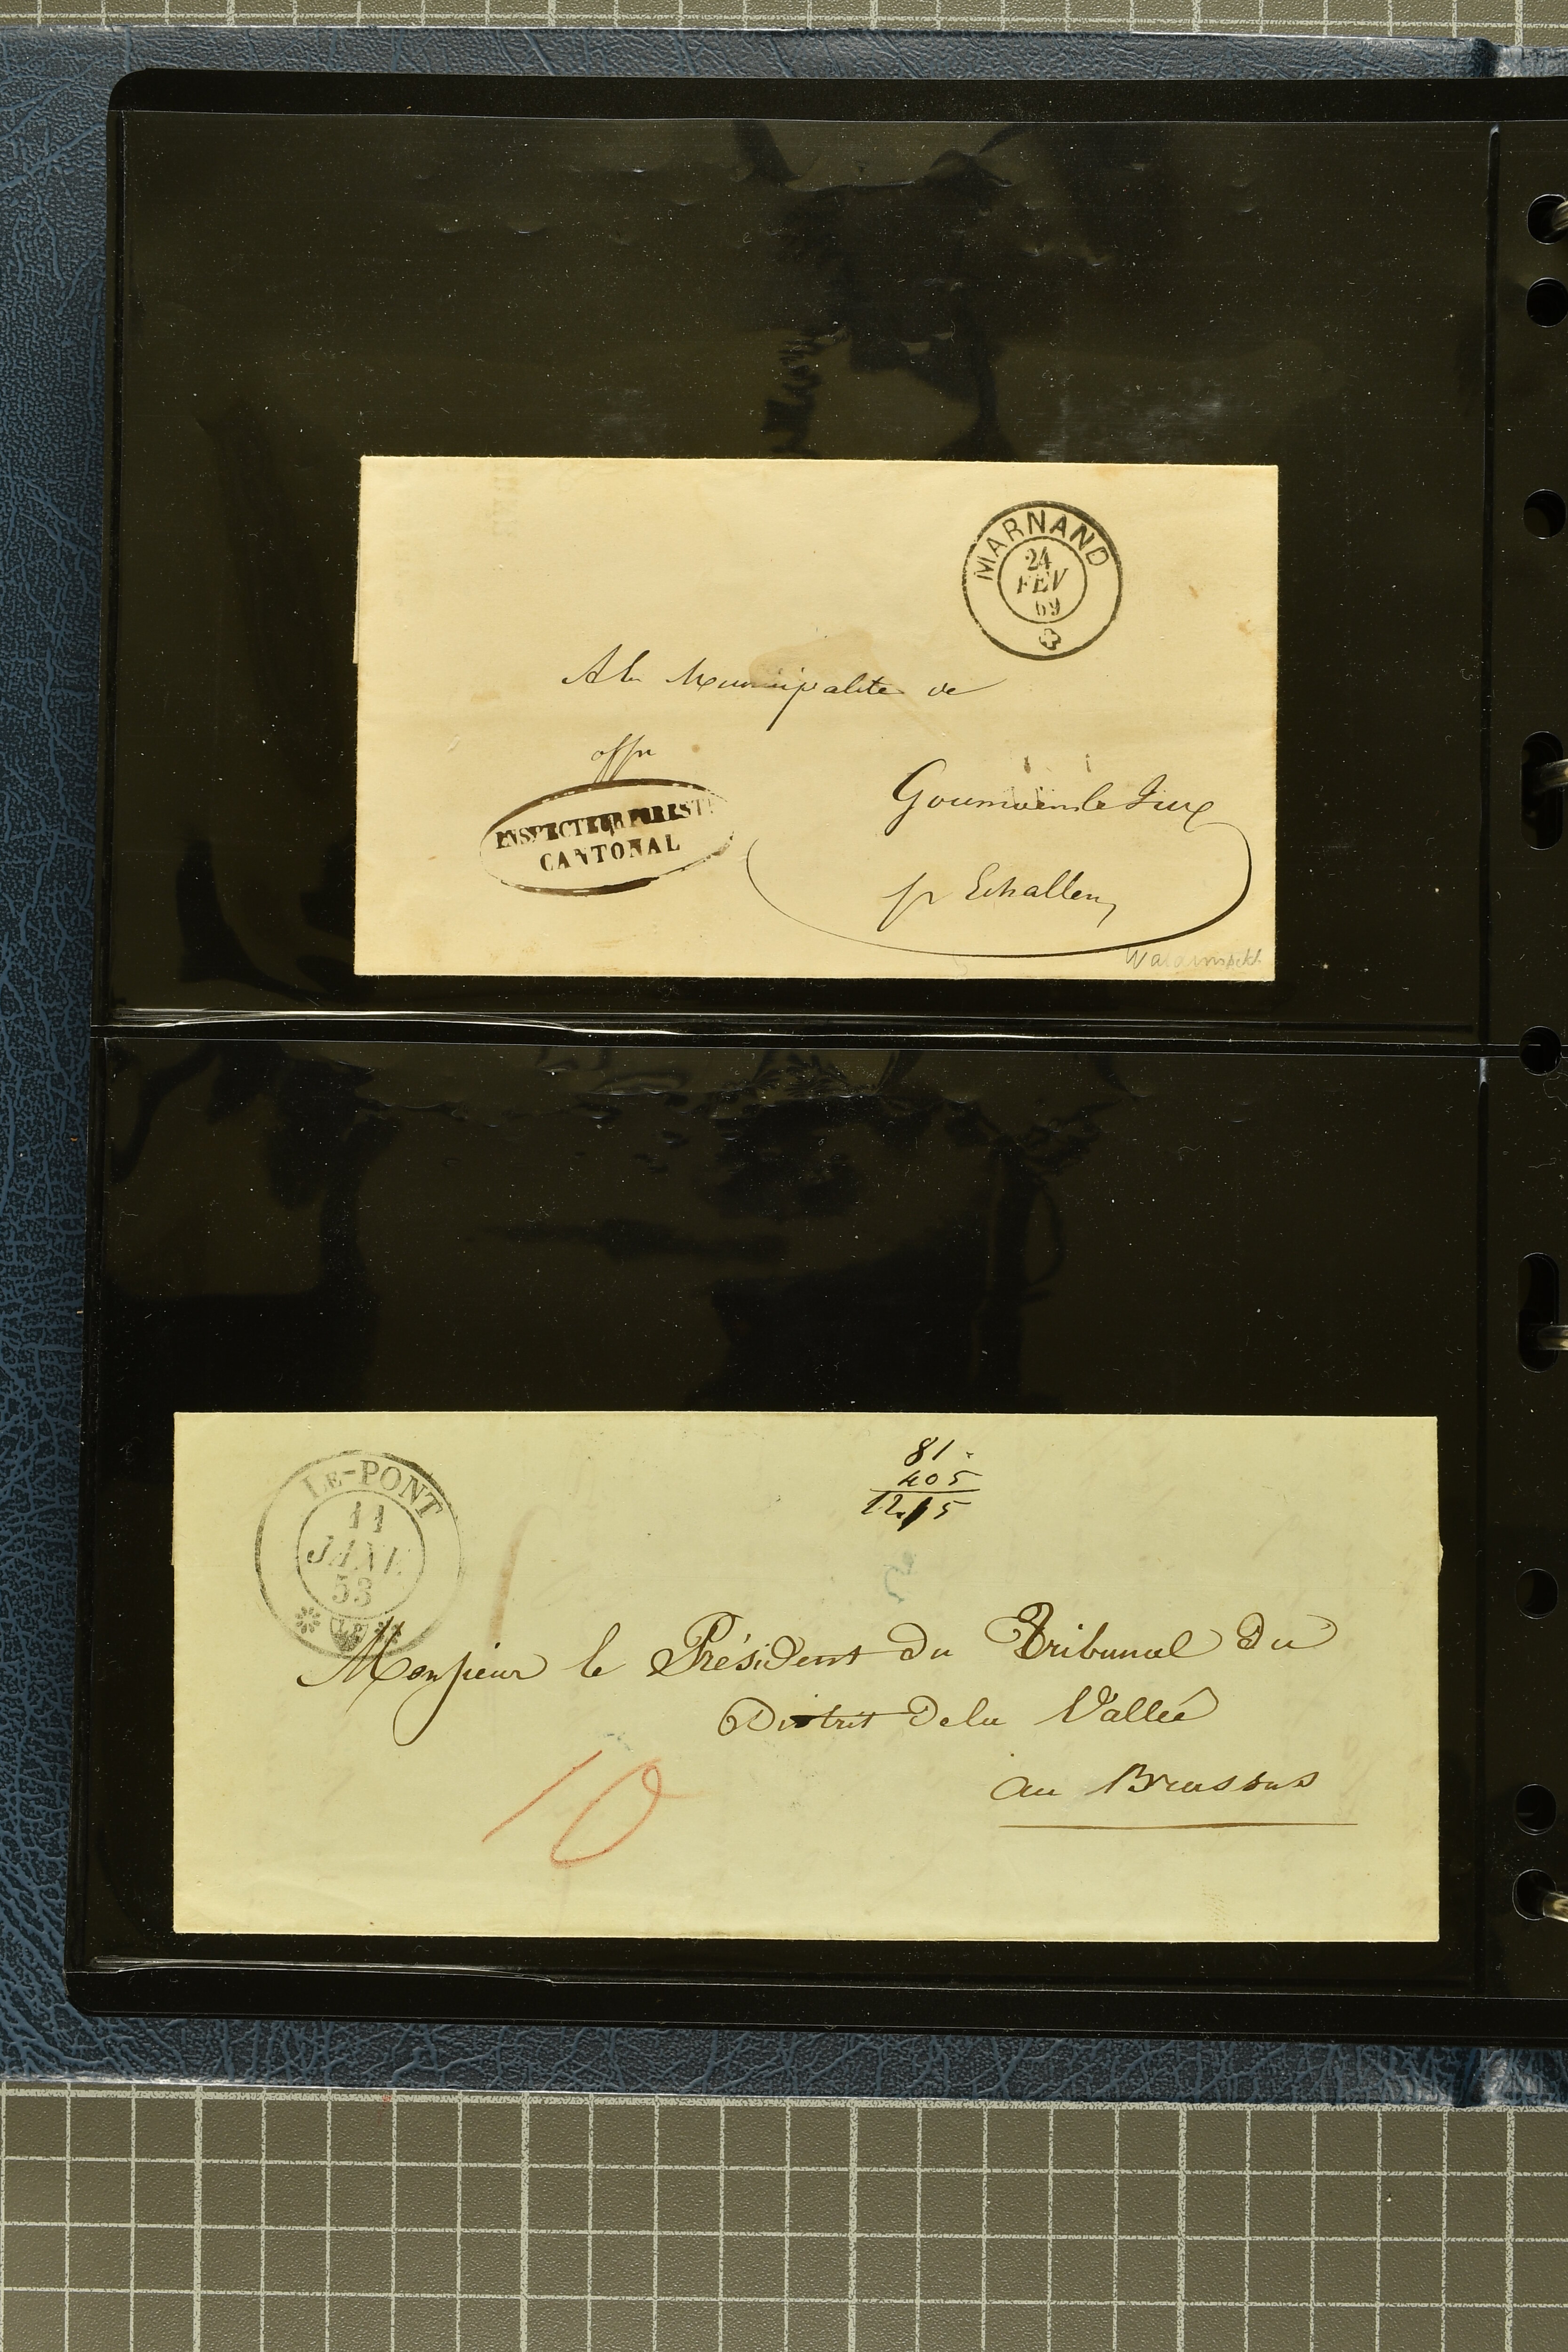 MARNAND
24
FEV
69
A la Municipalité de
offu
INSPECTEUR FOREST
CANTONAL
Goumoens le Jux
pr Echallens
Waldinspekt.
LE-PONT
11
JANV
53
81.
405
12.15
Monsieur le Président du Tribunal du
District de la Vallée
au Brassus
10